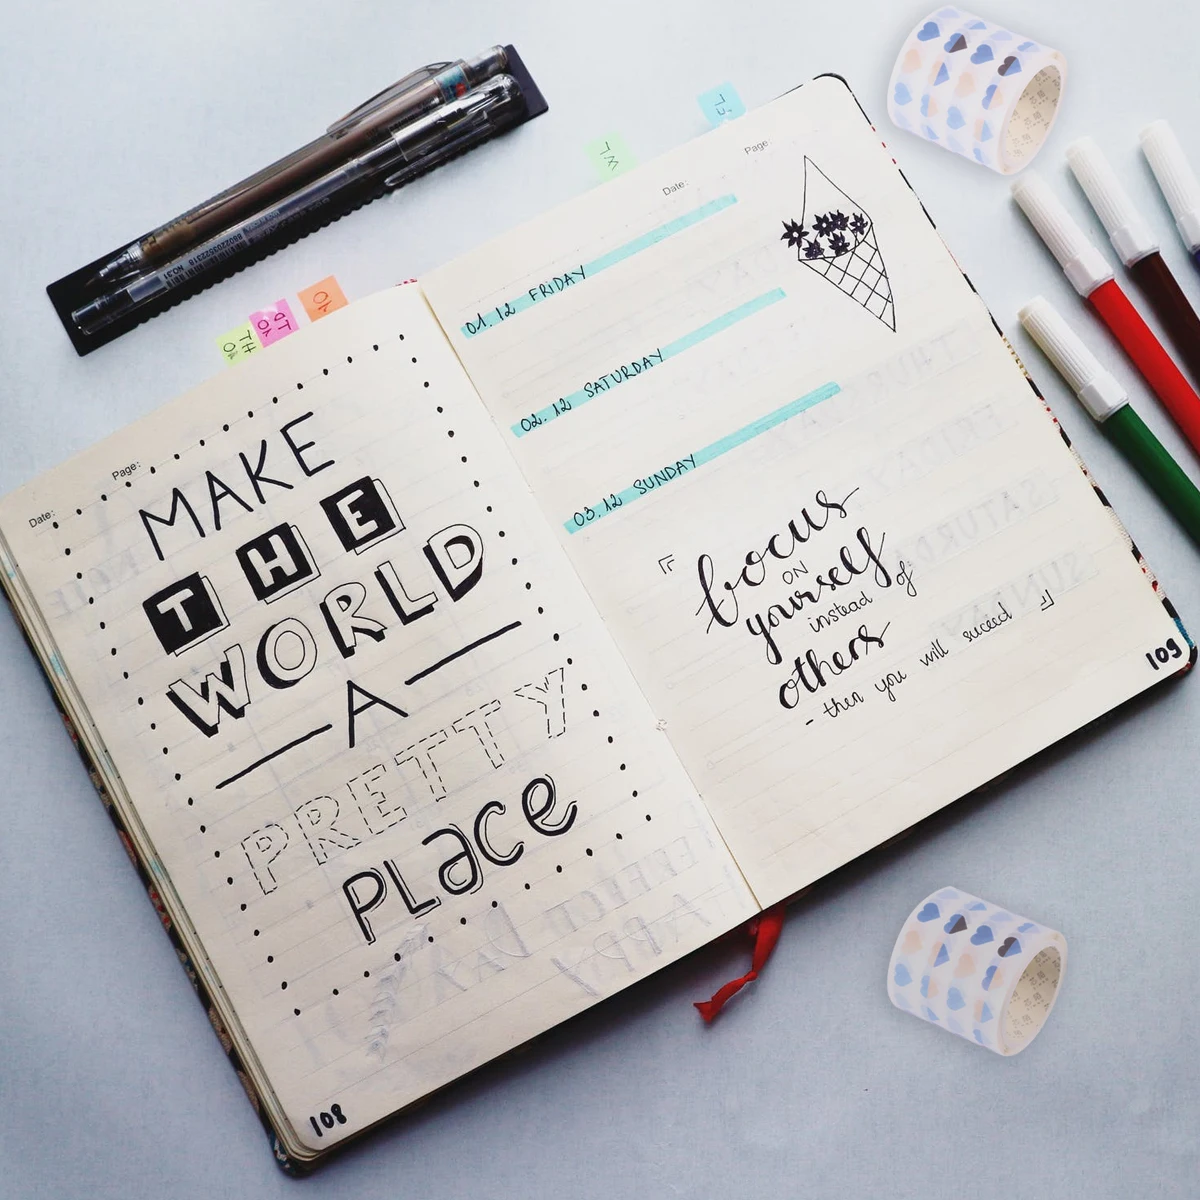 Date:
Page:
MAKE
THE
WORLD
A
PRETTY
PLace
108
Date:
Page
01. 12 FRIDAY
02. 12 SATURDAY
03. 12 SUNDAY
focus
ON
yourself
instead of
others
- then you will succed
109
8802203522316 NO.31